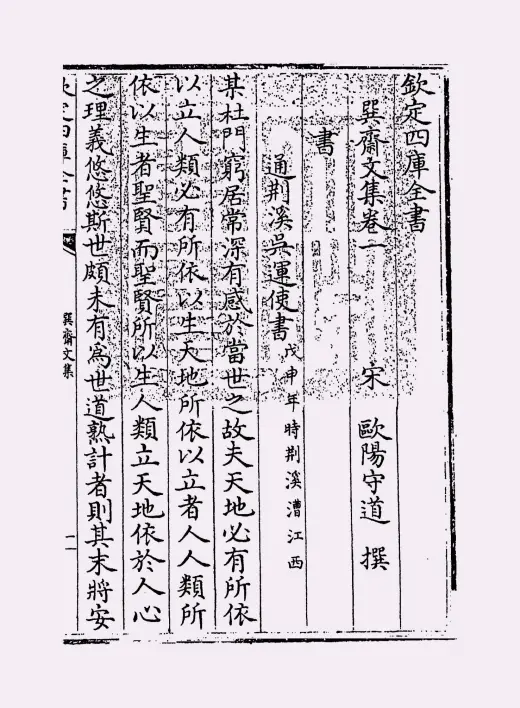 欽定四庫全書
巽齋文集卷一
宋 歐陽守道 撰
書
通荆溪吳運使書 戊申年時荆溪漕江西
某杜門窮居常深有感於當世之故夫天地必有所依
以立人類必有所依以生天地所依以立者人人類所
依以生者聖賢而聖賢所以生人類立天地依於人心
之理義悠悠斯世頗未有為世道熟計者則其末將安
欽定四庫全書
巽齋文集
一